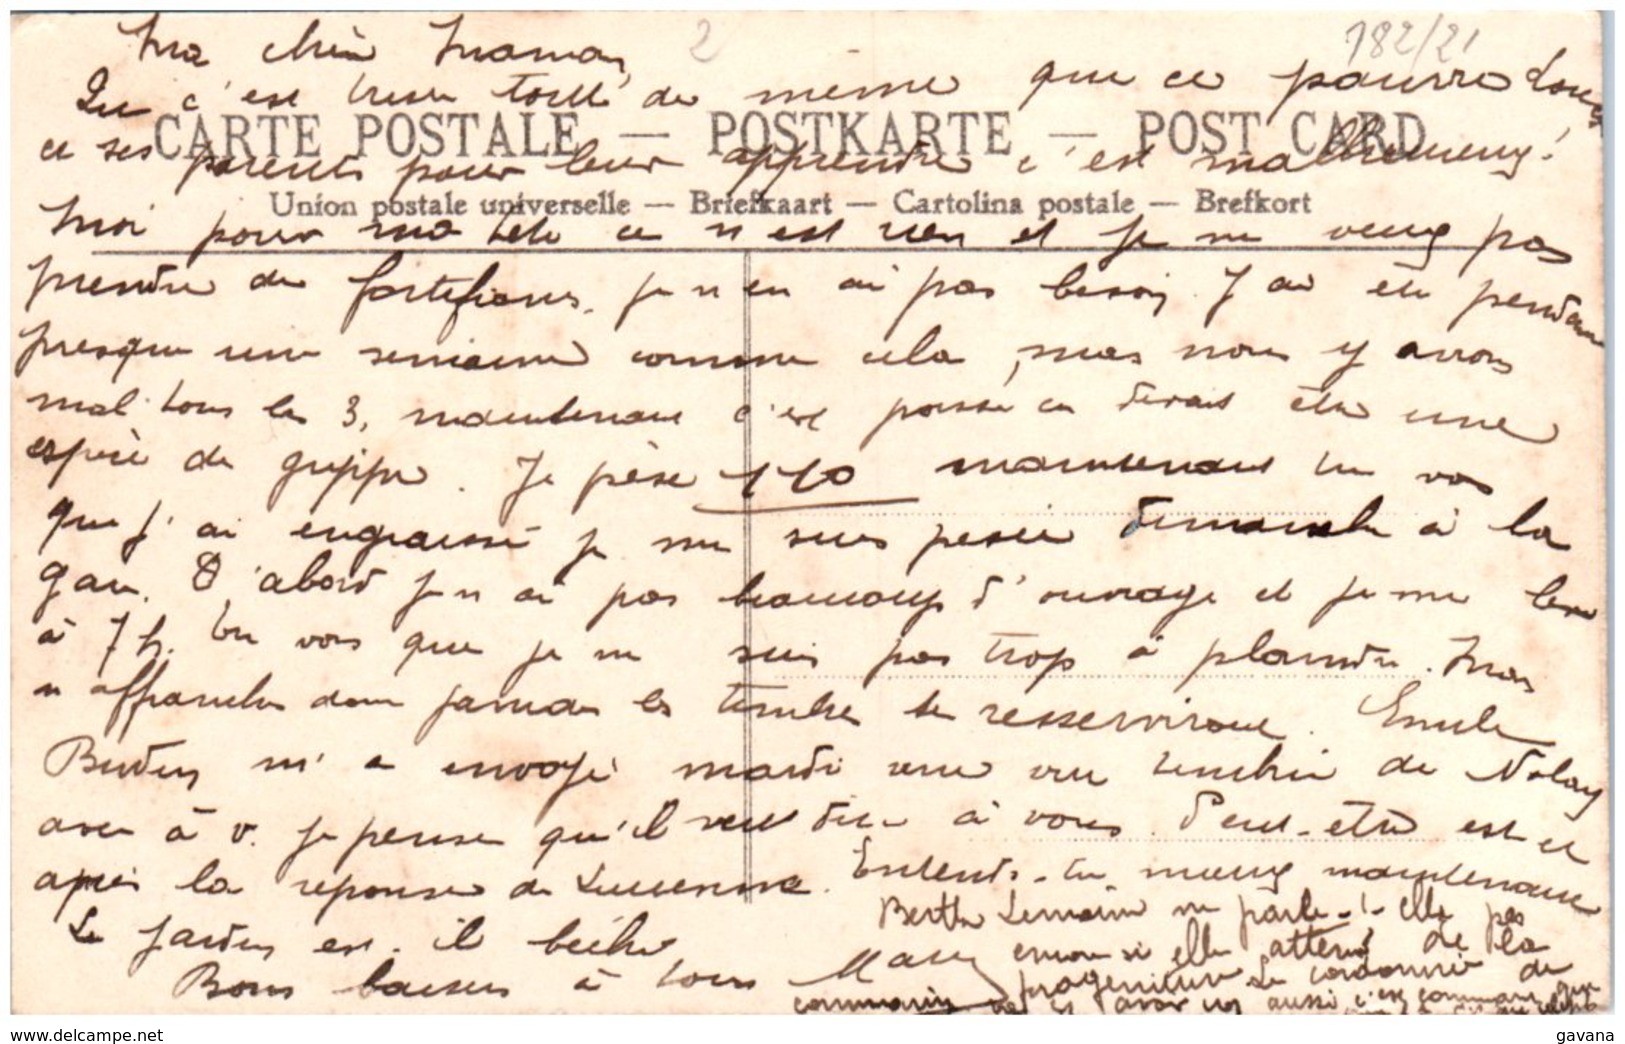 Ma chère Maman, 2 182/21
Que c'est triste tout de même que ce pauvre Louis
CARTE POSTALE — POSTKARTE — POST CARD
et ses parents pour leur apprendre c'est malheureux!
Union postale universelle — Briefkaart — Cartolina postale — Brefkort
Moi pour ma tête ce n'est rien et je ne veux pas
prendre de fortifiants. je n'en ai pas besoin. J'ai été pendant
presque une semaine comme cela, mais nous y avons
mal tous les 3, maintenant c'est passé ça devait être une
espèce de grippe. Je pèse 110 maintenant tu vois
que j'ai engraissé je me suis pesée dimanche à la
gare. D'abord je n'ai pas beaucoup d'ouvrage et je me lève
à 7h. tu vois que je ne suis pas trop à plaindre. Mais
n'affranchis donc jamais les timbres se resserviront. Emile
m'a envoyé mardi une vue de Nolay
avec à v. je pense qu'il veut dire à vous. Peut-être est-ce
après la réponse de Lucienne. Entends-tu mieux maintenant
Le jardin est-il bêché
Berthe Lemoine me parle elle pas
encore si elle attend de la
Bons baisers à tous
progéniture Le cordonnier de
aussi c'est comme